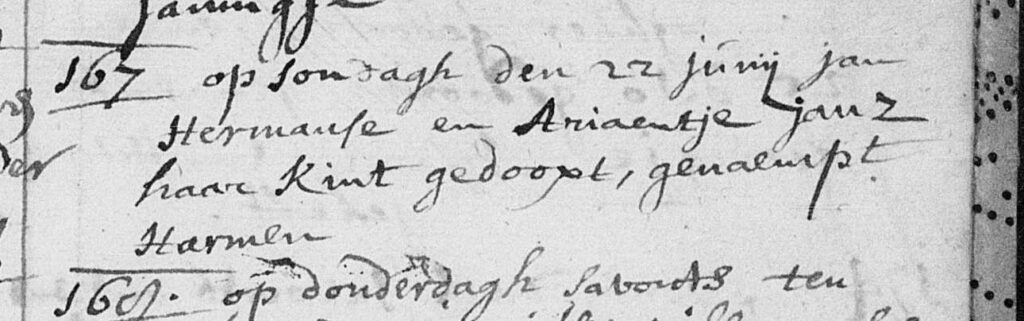 Janneghje
167 op sondagh den 22 junij jan
Hermanse en Ariaentje janz
haar Kint gedoopt, genaempt
Harmen
168. op donderdagh savonts ten